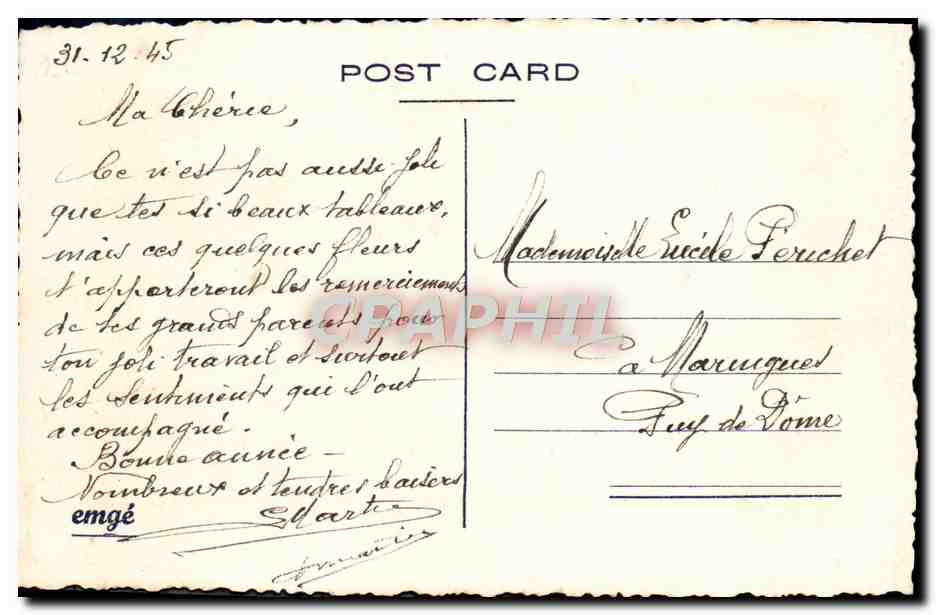 31-12-45
POST CARD
Ma Chérie,
Ce n'est pas aussi joli
que tes si beaux tableaux,
mais ces quelques fleurs
t'apporteront les remerciements
de tes grands parents pour
ton joli travail et surtout
les sentiments qui l'ont
accompagné.
Bonne année -
Nombreux et tendres baisers
emgé
Mademoiselle Perichet
à Maringues
Puy de Dôme
CPAPHIL